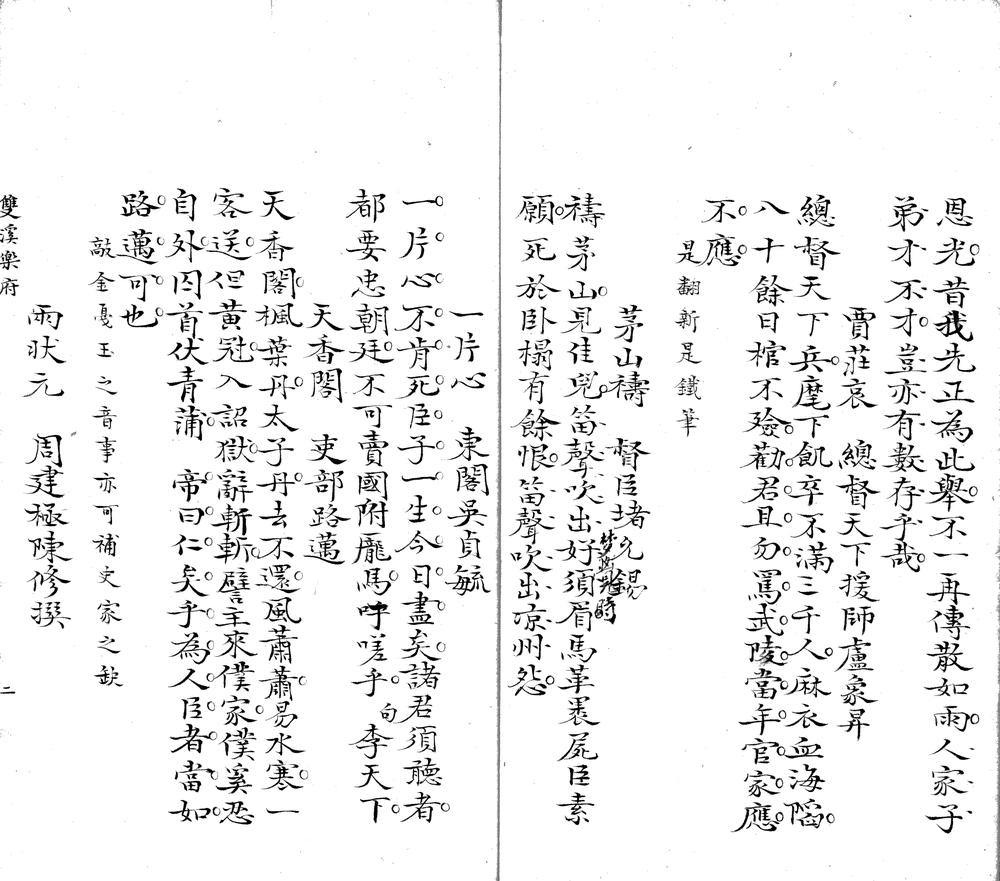 恩光昔我先正為此舉不一再傳散如雨人家子
弟才不才豈亦有數存乎哉
賈莊哀　總督天下援師盧象昇
總督天下兵麾下飢卒不滿三千人麻衣血海陷
八十餘日棺不殮勸君且勿罵武陵當年官家應
不應
是翻新是鐵筆
茅山禱　督臣堵允錫
禱茅山見佳兒笛聲吹出好須眉馬革裹屍臣素
願死於臥榻有餘恨笛聲吹出凉州怨
一片心　東閣吳貞毓
一片心不肯死臣子一生今日盡矣諸君須聽者
都要忠朝廷不可賣國附龐馬吽嗟乎句李天下
天香閣　吏部路邁
天香閣楓葉丹太子丹去不還風蕭蕭易水寒一
客送但黃冠入詔獄辭斬斬譬主來僕家僕奚恐
自外囚首伏青蒲　帝曰仁矣乎為人臣者當如
路邁可也
敲金戞玉之音事亦可補史家之缺
兩狀元　周建極陳修撰
雙溪樂府
二